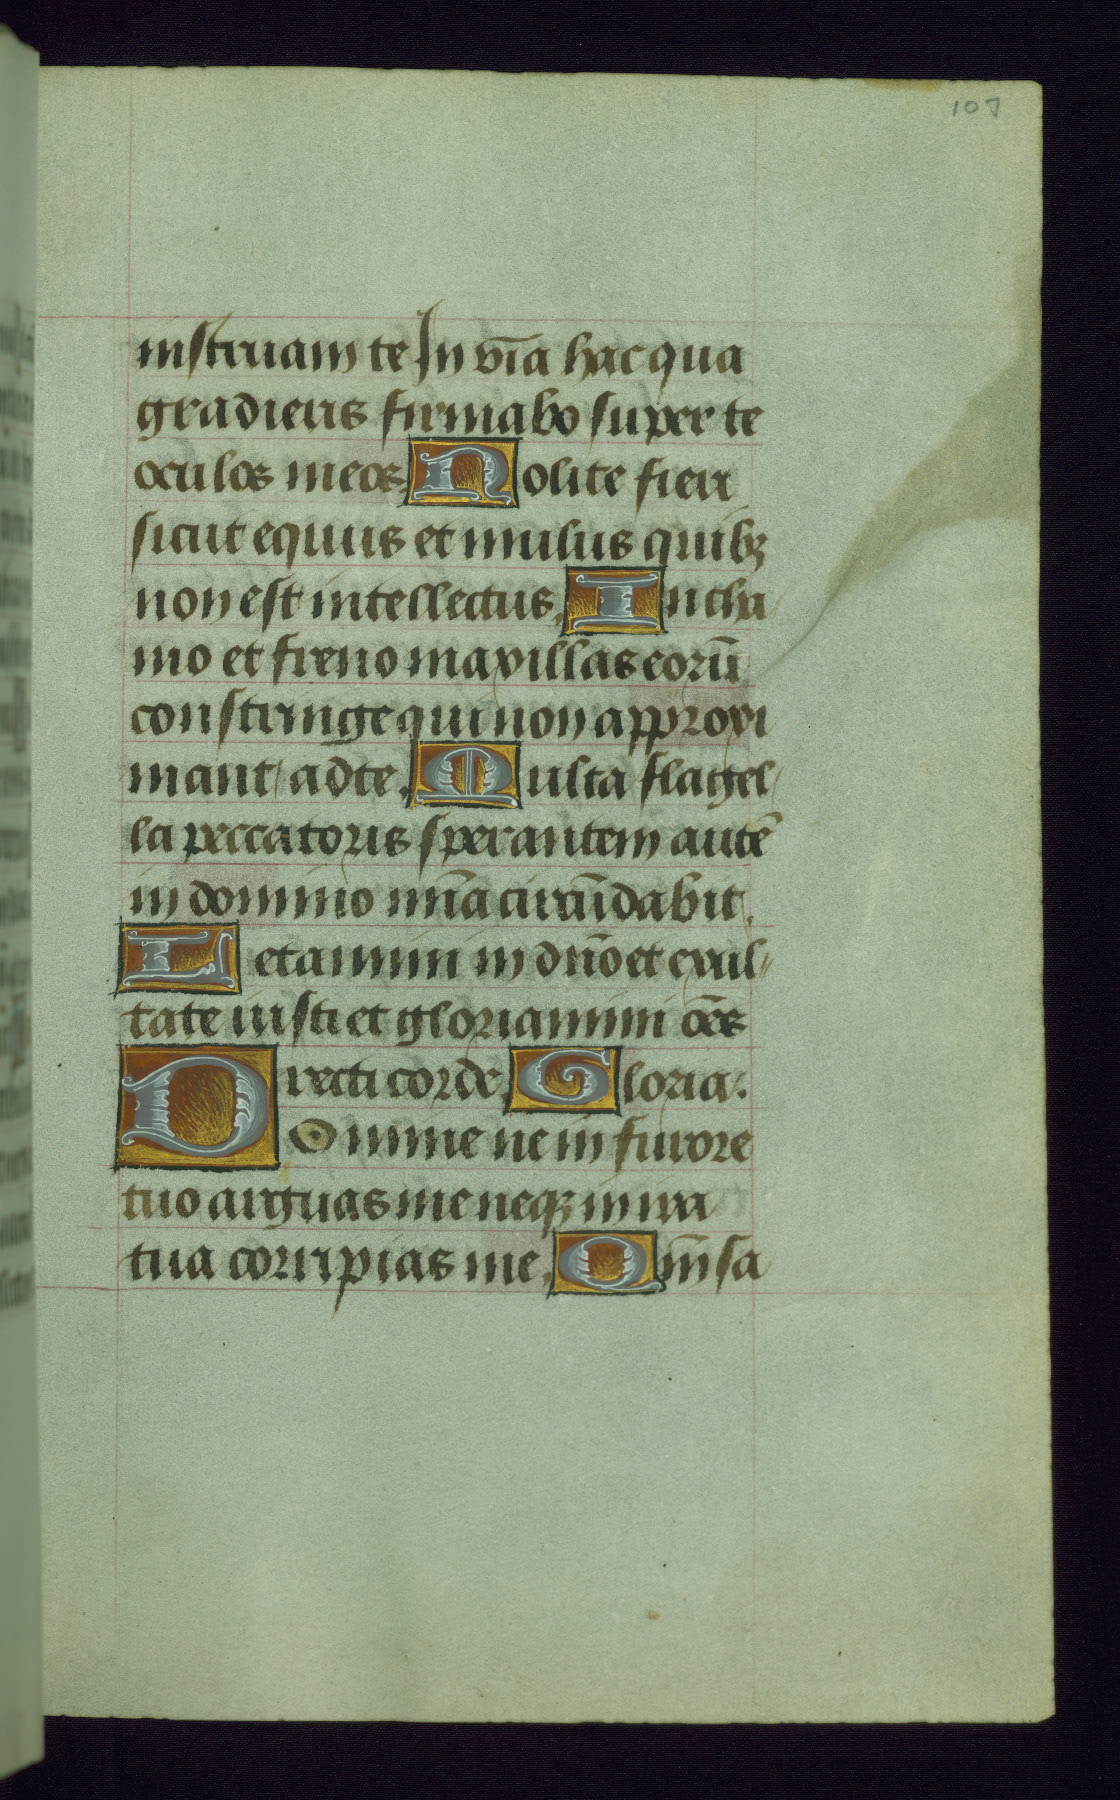 107
instruam te In via hac qua
gradieris firmabo super te
oculos meos Nolite fieri
sicut equus et mulus quibꝫ
non est intellectus. In cha
mo et freno maxillas eorū
constringe qui non approxi
mant ad te. Multa flagel
la peccatoris sperantem autē
in domino mīa circūdabit.
Letamini in dn̄o et exul
tate iusti et gloriamini oēs
recti corde. Gloria.
Domine ne in furore
tuo arguas me neqꝫ in ira
tua corripias me. Qm̄ sa